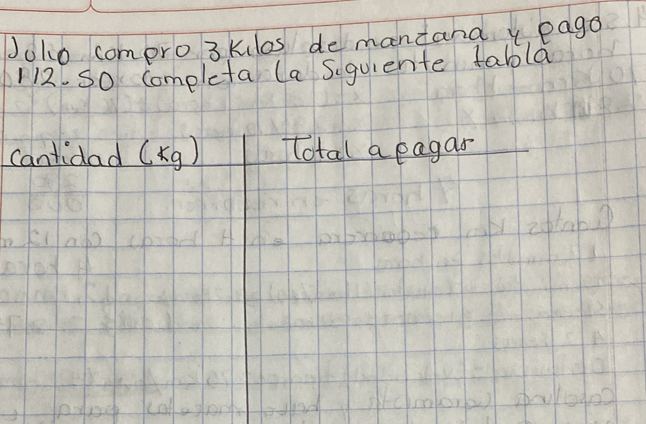 Jolio compro 3 Kilos de manzana y pago
112.50 completa la Siguiente tabla
cantidad (Kg) Total a pagar